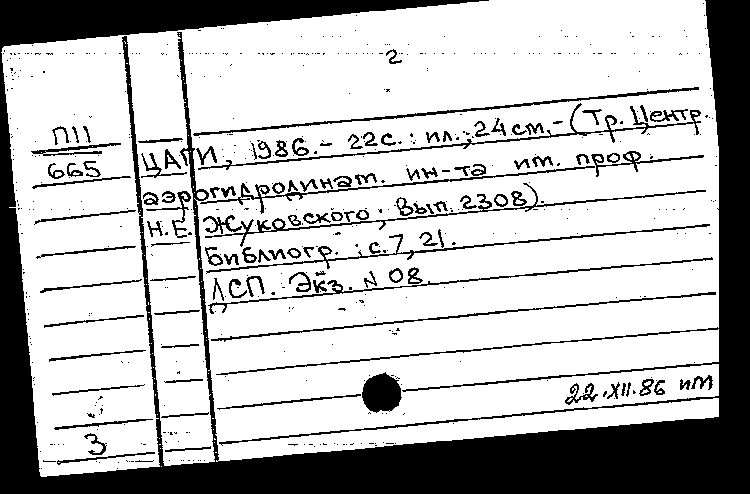 2
П11
665
ЦАГИ, 1986.- 22с.: ил.; 24 см.-(Тр. Центр.
аэрогидродинам. ин-та им. проф.
Н.Е. Жуковского; Вып. 2308).
Библиогр.: с.7, 21.
ДСП. Экз. N 08.
22.XII.86 им
3